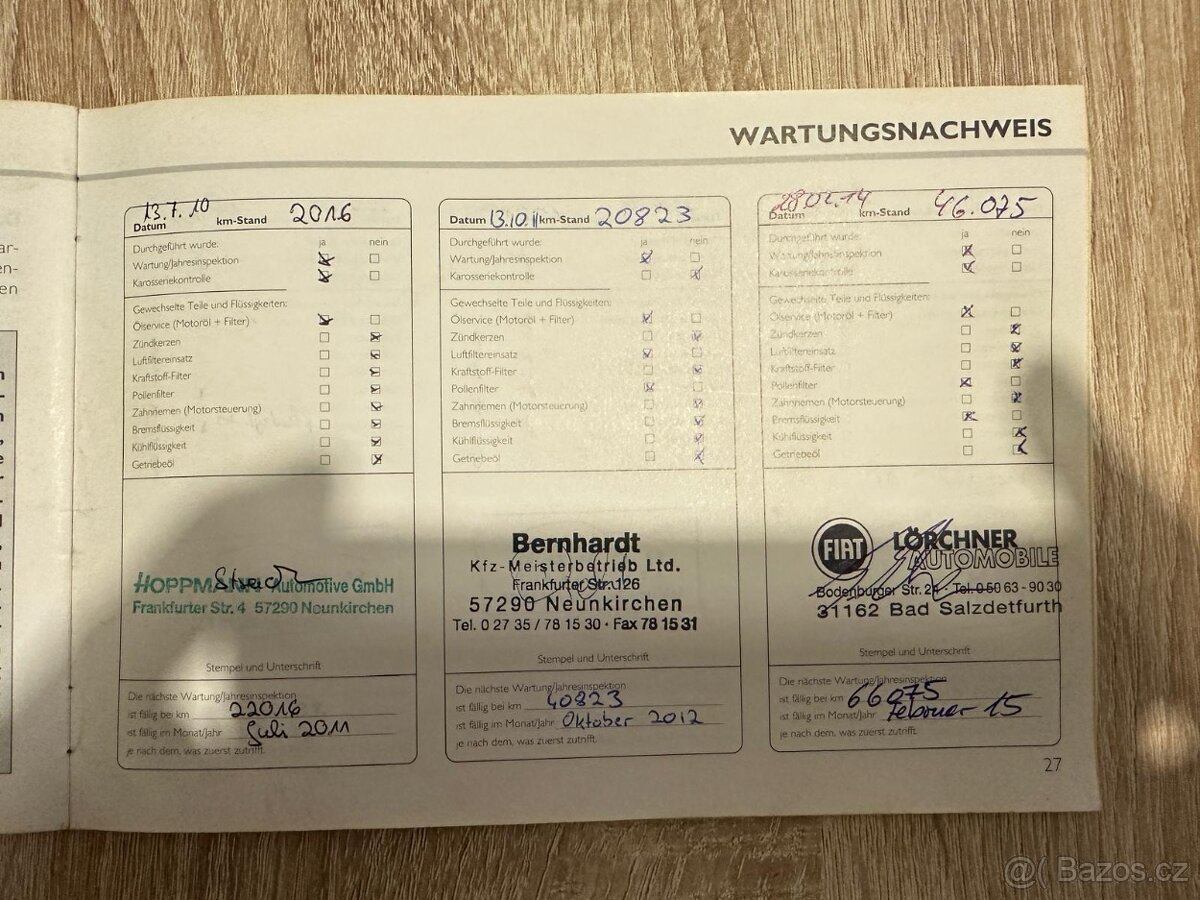 WARTUNGSNACHWEIS
13.7.10
Datum
km-Stand 2016
Durchgeführt wurde: ja nein
Wartung/Jahresinspektion
Karosseriekontrolle
Gewechselte Teile und Flüssigkeiten:
Ölservice (Motoröl + Filter)
Zündkerzen
Luftfiltereinsatz
Kraftstoff-Filter
Pollenfilter
Zahnriemen (Motorsteuerung)
Bremsflüssigkeit
Kühlflüssigkeit
Getriebeöl
HOPPMANN Automotive GmbH
Frankfurter Str. 4 57290 Neunkirchen
Stempel und Unterschrift
Die nächste Wartung/Jahresinspektion
ist fällig bei km 22016
ist fällig im Monat/Jahr Juli 2011
je nach dem, was zuerst zutrifft.
Datum 13.10.11 km-Stand 20823
Durchgeführt wurde: ja nein
Wartung/Jahresinspektion
Karosseriekontrolle
Gewechselte Teile und Flüssigkeiten:
Ölservice (Motoröl + Filter)
Zündkerzen
Luftfiltereinsatz
Kraftstoff-Filter
Pollenfilter
Zahnriemen (Motorsteuerung)
Bremsflüssigkeit
Kühlflüssigkeit
Getriebeöl
Bernhardt
Kfz-Meisterbetrieb Ltd.
Frankfurter Str. 126
57290 Neunkirchen
Tel. 0 27 35 / 78 15 30 · Fax 78 15 31
Stempel und Unterschrift
Die nächste Wartung/Jahresinspektion
ist fällig bei km 40823
ist fällig im Monat/Jahr Oktober 2012
je nach dem, was zuerst zutrifft.
28.02.14
Datum
km-Stand 46.075
Durchgeführt wurde: ja nein
Wartung/Jahresinspektion
Karosseriekontrolle
Gewechselte Teile und Flüssigkeiten:
Ölservice (Motoröl + Filter)
Zündkerzen
Luftfiltereinsatz
Kraftstoff-Filter
Pollenfilter
Zahnriemen (Motorsteuerung)
Bremsflüssigkeit
Kühlflüssigkeit
Getriebeöl
FIAT LÖRCHNER
AUTOMOBILE
Bodenburger Str. 24 · Tel. 0 50 63 - 90 30
31162 Bad Salzdetfurth
Stempel und Unterschrift
Die nächste Wartung/Jahresinspektion
ist fällig bei km 66075
ist fällig im Monat/Jahr Februar 15
je nach dem, was zuerst zutrifft.
27
Bazos.cz